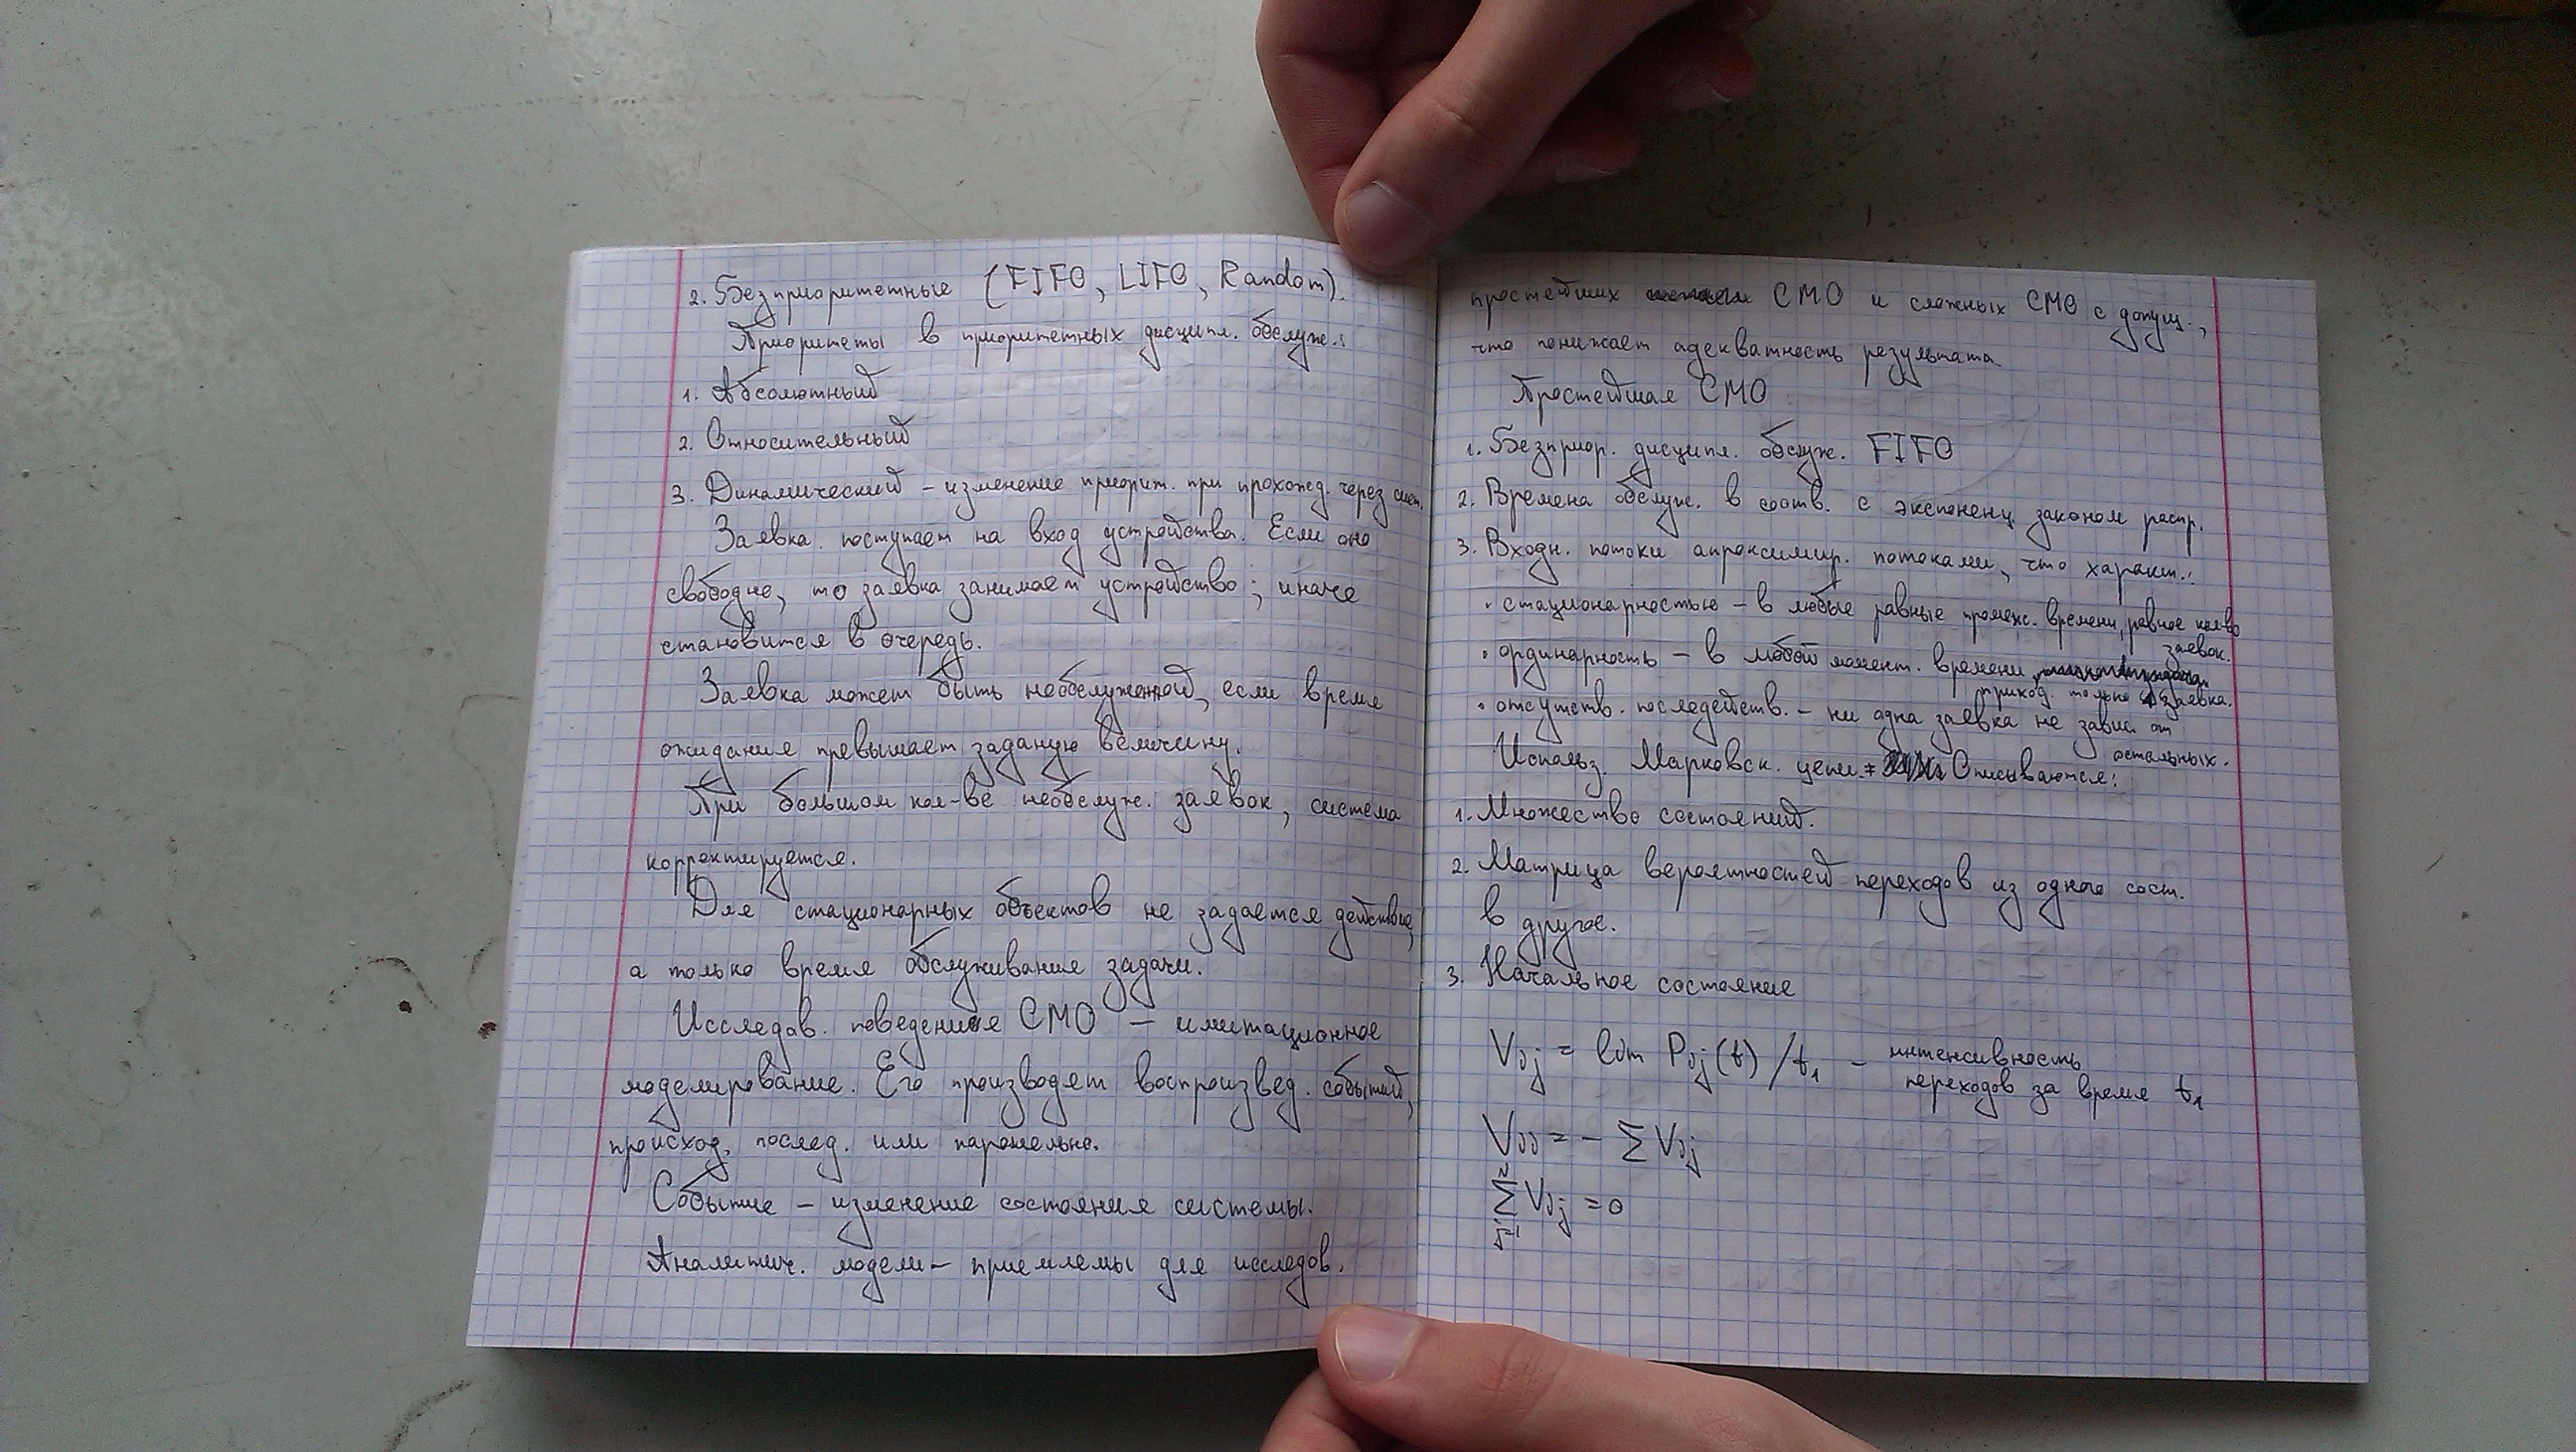 2. Безприоритетные (FIFO, LIFO, Random).
Приоритеты в приоритетных дисципл. обслуж.:
1. Абсолютный
2. Относительный
3. Динамический – изменение приорит. при прохожд. через сист.
Заявка поступает на вход устройства. Если оно
свободно, то заявка занимает устройство; иначе
становится в очередь.
Заявка может быть необслуженной, если время
ожидания превышает заданую величину.
При большом кол-ве необслуж. заявок, система
корректируется.
Для стационарных объектов не задается действие,
а только время обслуживания задачи.
Исследов. поведения СМО – имитационное
моделирование. Его производят воспроизвед. событий,
происход. послед. или паралельно.
Событие – изменение состояния системы.
Аналитич. модели – приемлемы для исследов.
простейших СМО и сложных СМО с допущ.,
что понижает адекватность результата
Простейшая СМО
1. Безприор. дисципл. обслуж. FIFO
2. Времена обслуж. в соотв. с экспоненц. законом распр.
3. Входн. потоки апроксимир. потоками, что характ.:
· стационарностью – в любые равные промеж. времени, равное кол-во
заявок.
· ординарность – в любой момент. времени
приход. только 1 заявка.
· отсутств. последейств. – ни одна заявка не завис. от
остальных.
Использ. Марковск. цепи. Описываются:
1. Множество состояний.
2. Матрица вероятностей переходов из одного сост.
в другое.
3. Начальное состояние
Vij = lim Pij(t)/t₁ – интенсивность
переходов за время t₁
Vii = – ∑ Vij
∑ Vij = 0